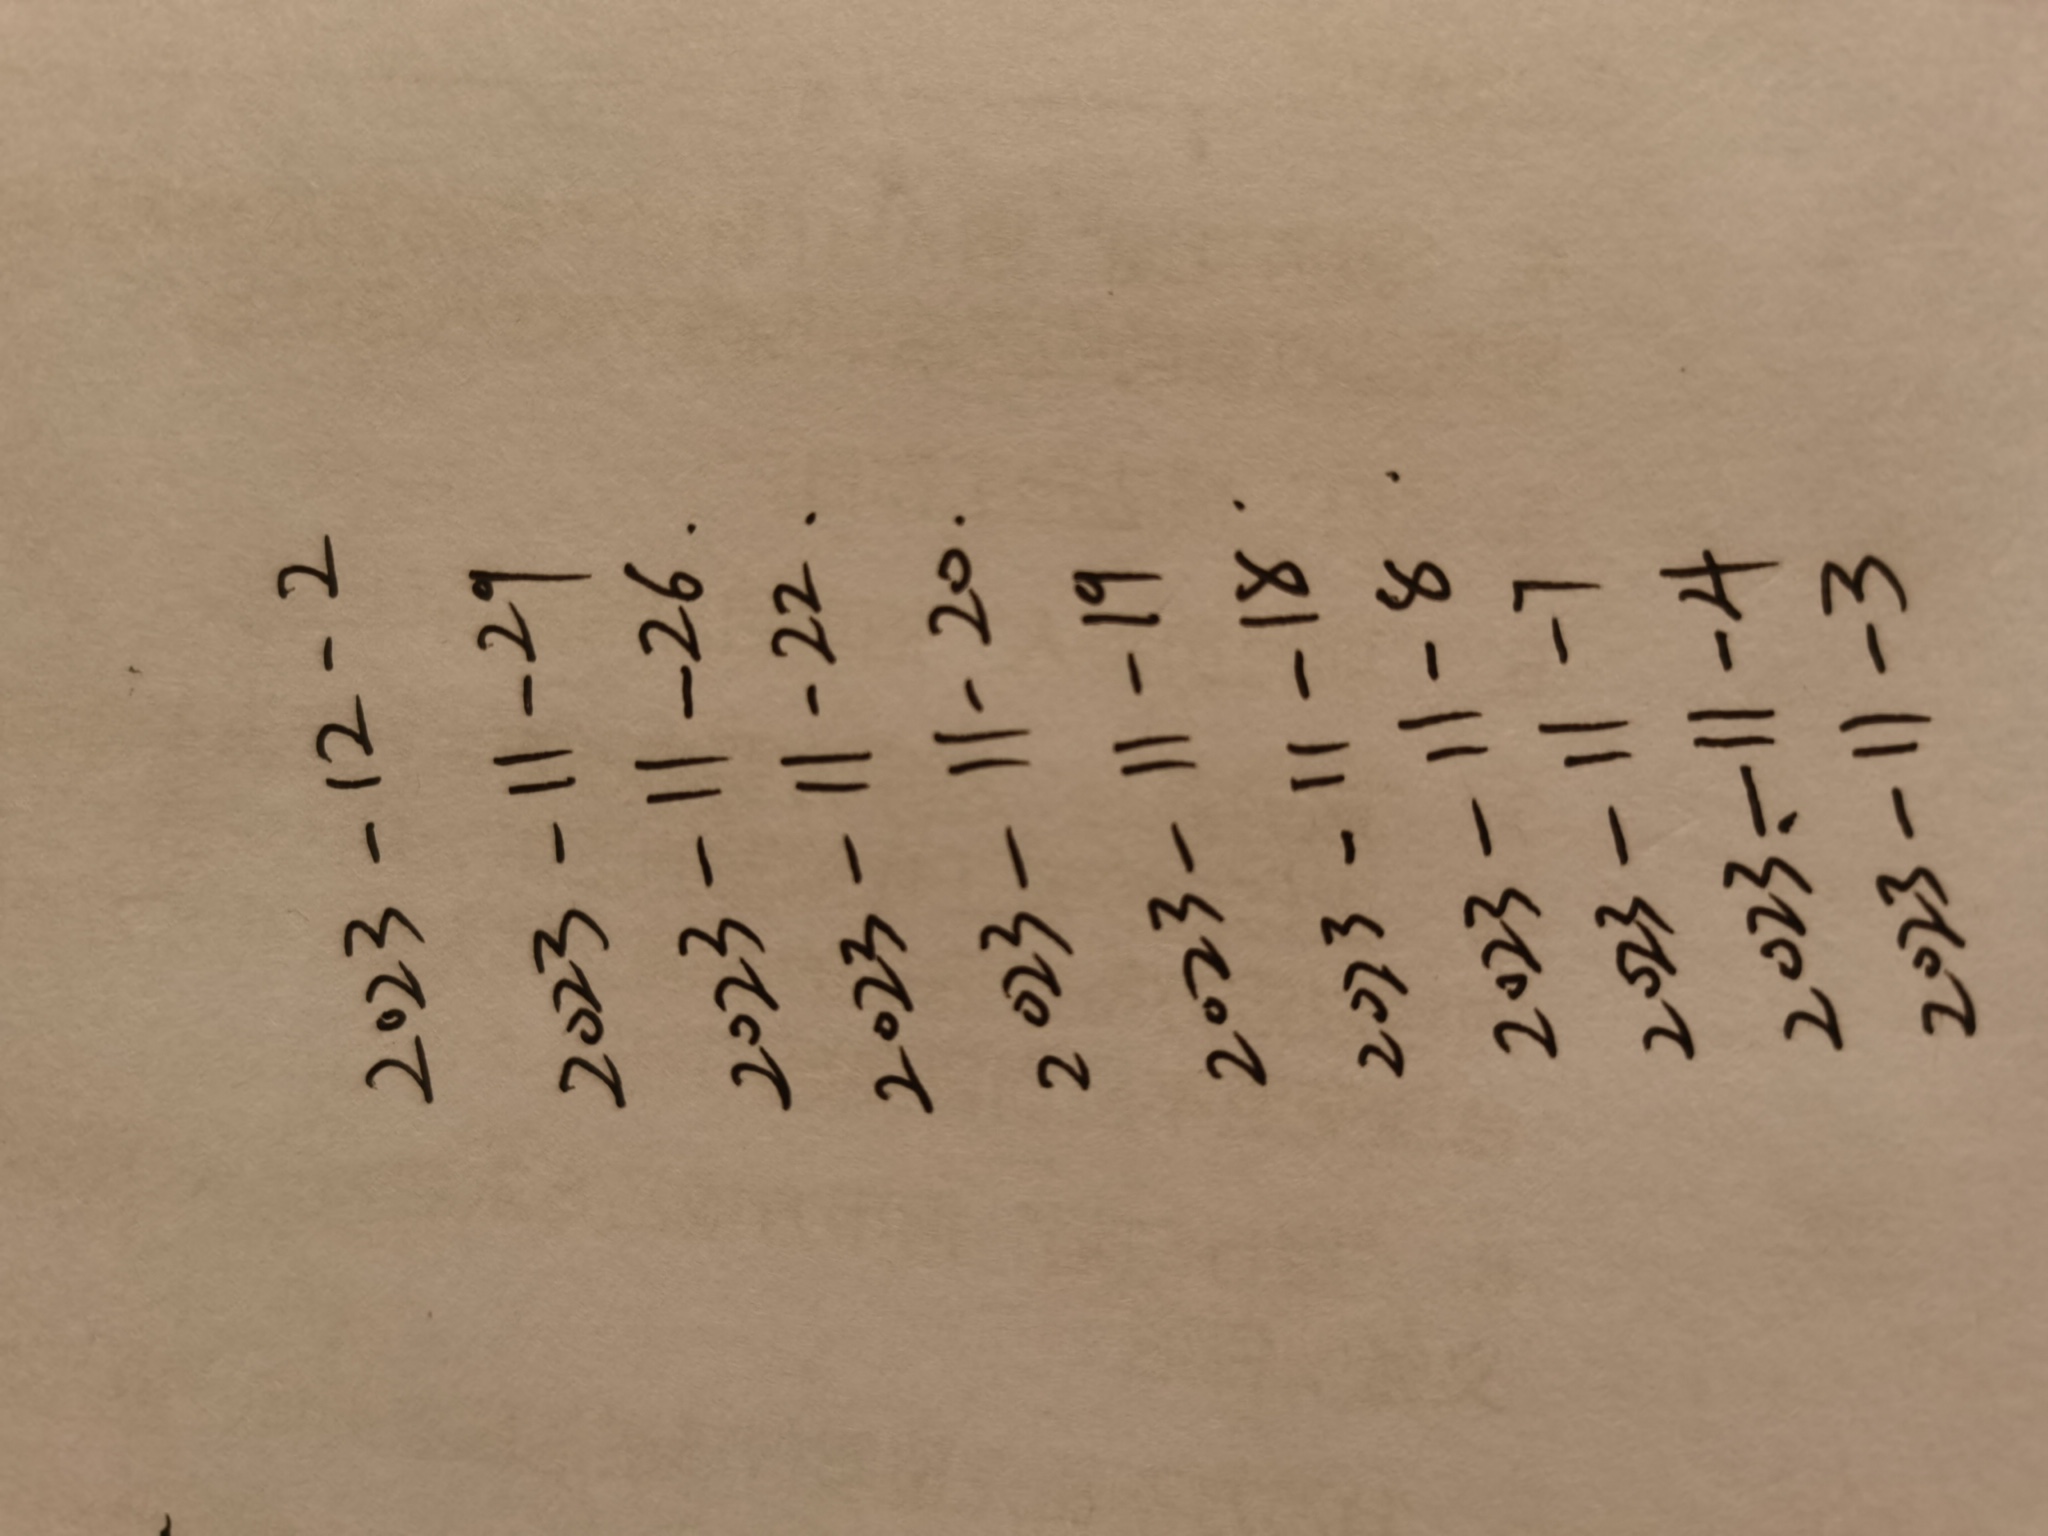 2023-12-2
2023-11-29
2023-11-26.
2023-11-22.
2023-11-20.
2023-11-19
2023-11-18.
2023-11-8.
2023-11-7
2023-11-4
2023-11-3